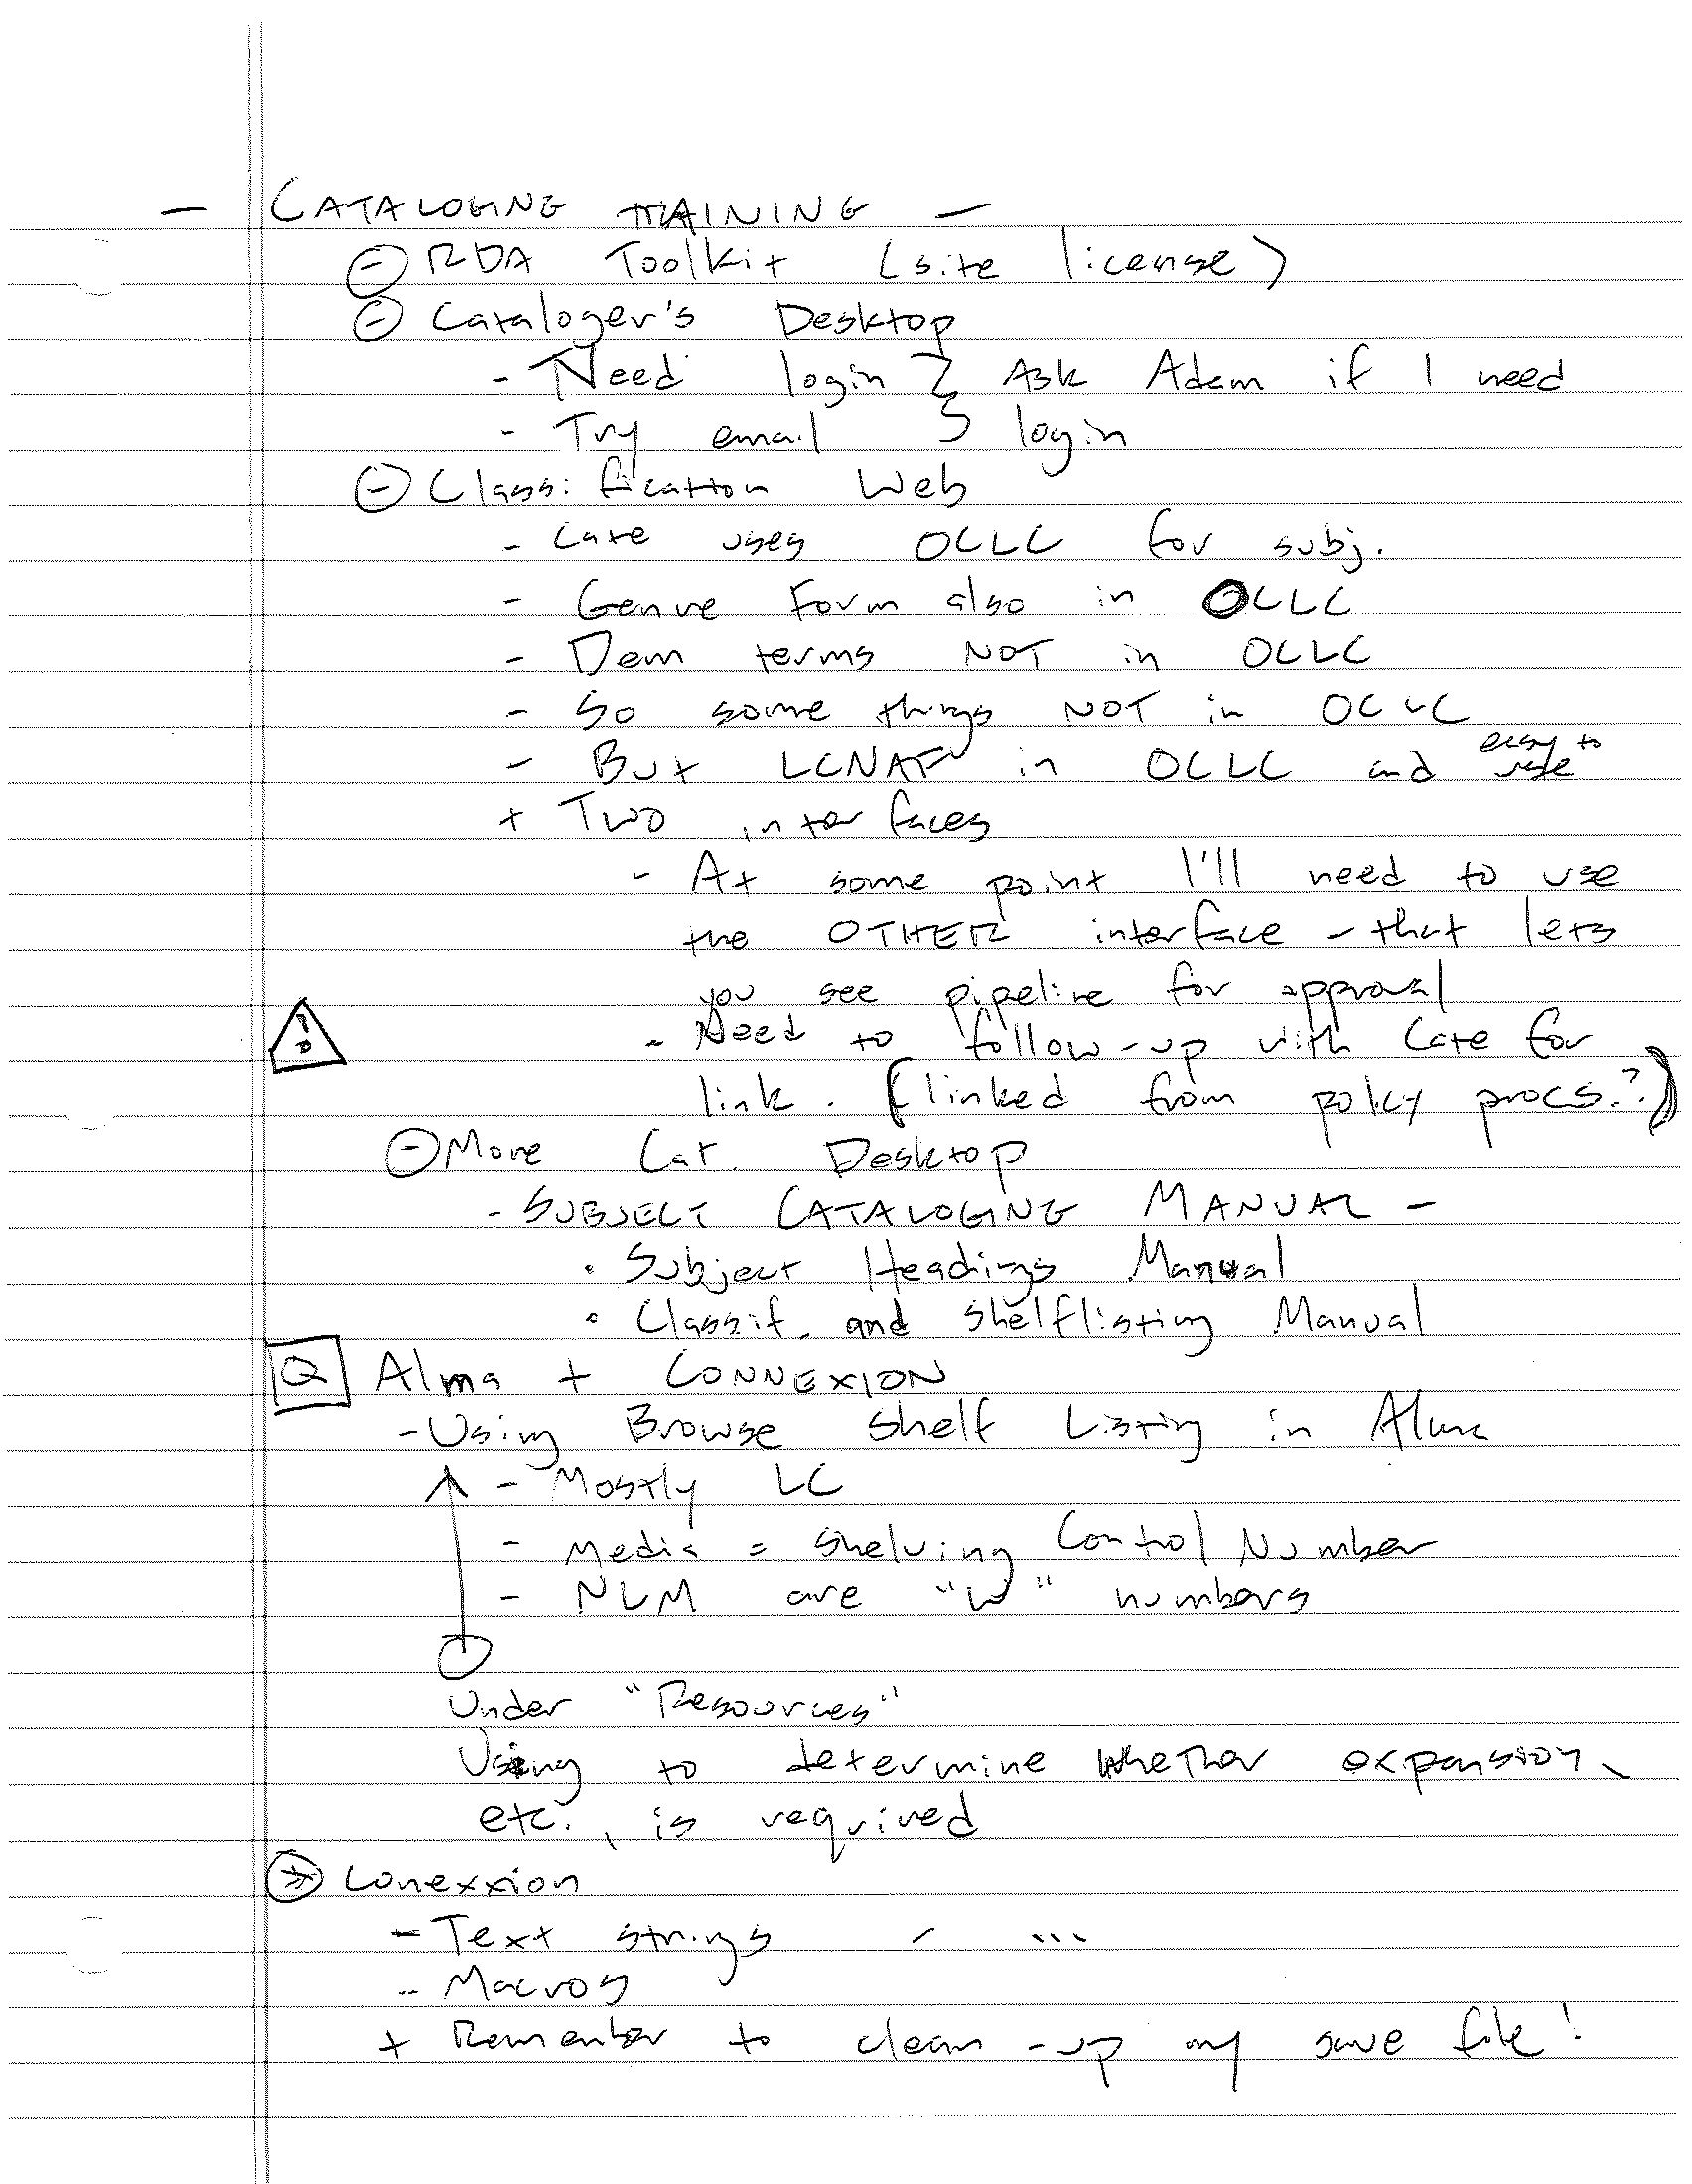 — CATALOGING TRAINING —
⊖ RDA Toolkit (site license)
⊖ Cataloger's Desktop
- Need login } Ask Adam if I need
- Try email } login
⊖ Classification Web
- Cate uses OCLC for subj.
- Genre Form also in OCLC
- Dem terms NOT in OCLC
- So some things NOT in OCLC
- But LCNAF in OCLC and easy to use
+ Two interfaces
- At some point I'll need to use
the OTHER interface - that lets
you see pipeline for approval
! - Need to follow-up with Cate for
link. (linked from policy procs.?)
⊖ More Cat. Desktop
- SUBJECT CATALOGING MANUAL -
• Subject Headings Manual
• Classif. and Shelflisting Manual
Q Alma + CONNEXION
- Using Browse Shelf Listing in Alma
- Mostly LC
- Media = Shelving Control Number
- NLM are "W" numbers
Under "Resources"
Using to determine whether expansion,
etc., is required
Conexxion
- Text strings - ...
- Macros
+ Remember to clean-up my save file!